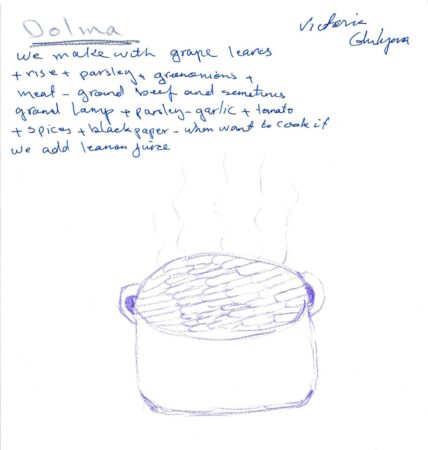 Dolma
Victoria
we make with grape leaves
+ rise + parsley + greenonions +
meat - ground beef and sometimes
grand lamp + parsley - garlic + tomato
+ spices + black paper - when want to cook it
we add leamon juice